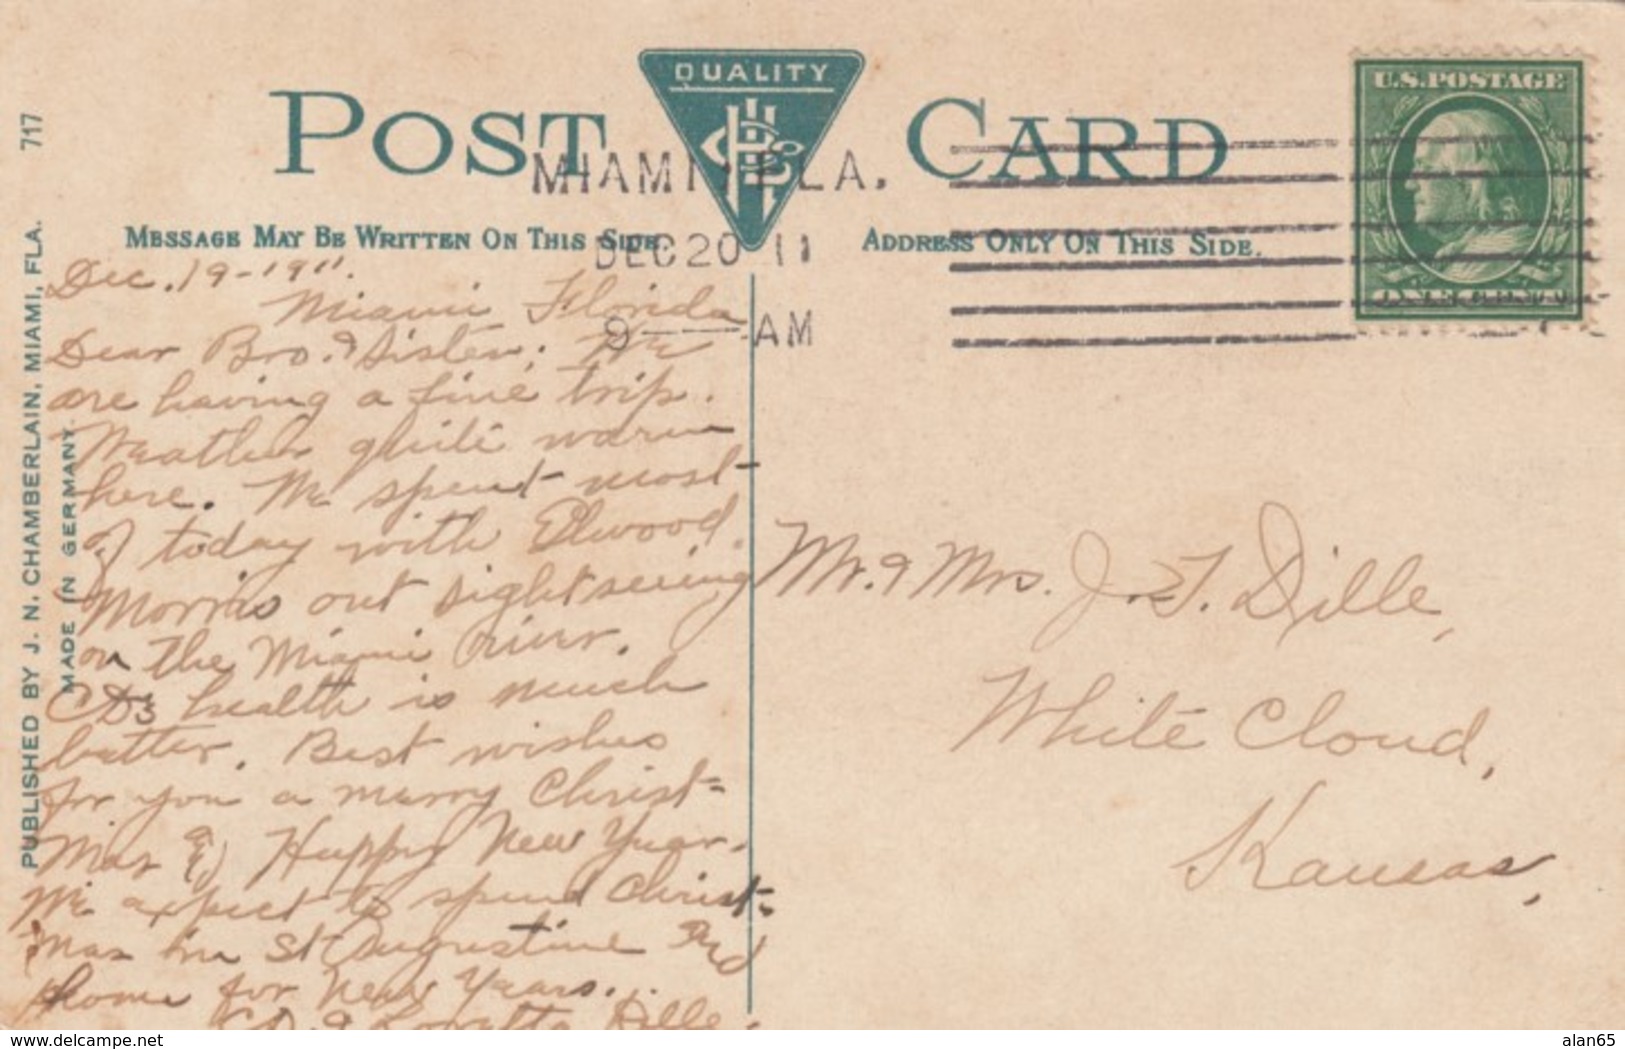 717
QUALITY
POST CARD
MIAMI, FLA.
DEC 20 11
9 — AM
U.S. POSTAGE
MESSAGE MAY BE WRITTEN ON THIS SIDE.
ADDRESS ONLY ON THIS SIDE.
PUBLISHED BY J. N. CHAMBERLAIN, MIAMI, FLA.
MADE IN GERMANY.
Dec. 19-1911.
Miami Florida
Dear Bro. & Sister; We
are having a fine trip.
Weather quite warm
here. We spent most
of today with Elwood
Morris out sightseeing
on the Miami River.
CD's health is much
better. Best wishes
for you a merry Christ=
Mas & Happy New Year.
We expect to spend Christ=
mas in St Augustine and
home for New Years.
CD. & Loretta Dille.
Mr. & Mrs. J. T. Dille,
White Cloud,
Kansas,
www.delcampe.net
alan65